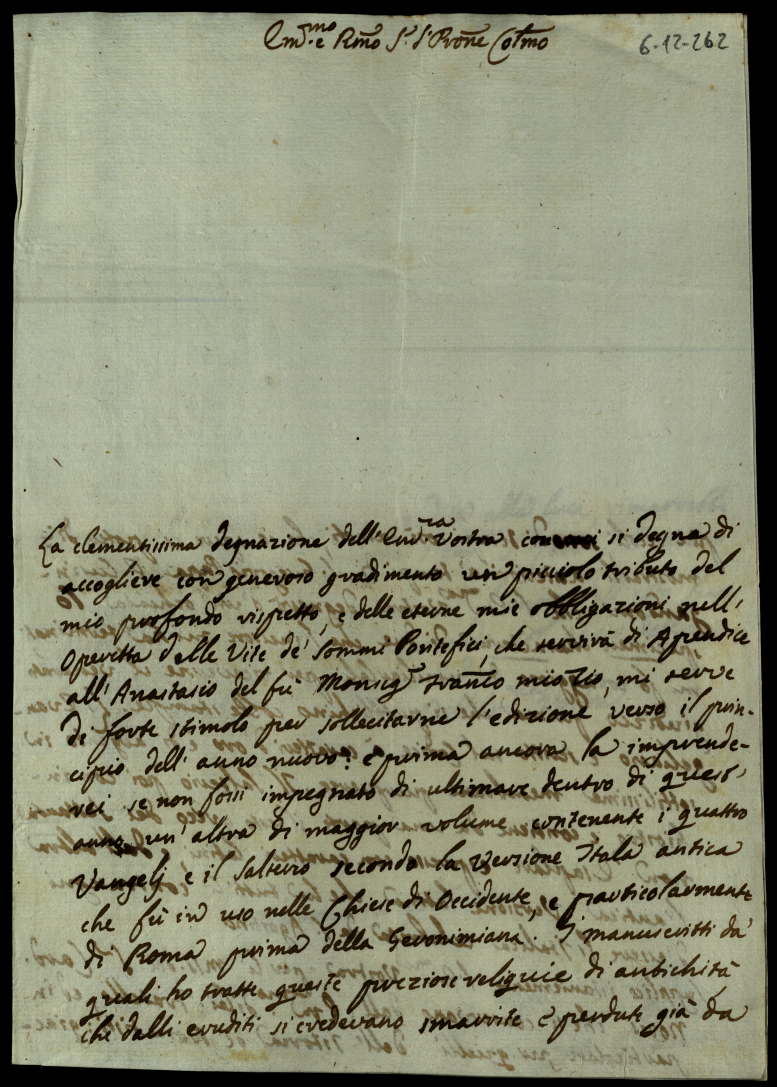 Em.mo e Rmo Sr. Sr. Prone Colmo
6-12-262
La clementissima degnazione dell'Em.ra Vostra con cui si degna di
accogliere con generoso gradimento un picciolo tributo del
mio profondo rispetto, e delle eterne mie obbligazioni nell'
Operetta delle Vite de' Sommi Pontefici, che servirà di Apendice
all'Anastasio del fù Monsigr. Franco mio Zio, mi serve
di forte stimolo per sollecitarne l'edizione verso il prin-
cipio dell'anno nuovo: e prima ancora la imprende-
rei se non fossi impegnato di ultimare dentro di quest'
anno un'altra di maggior volume contenente i quattro
Vangelj e il Salterio secondo la Versione Itala antica
che fù in uso nelle Chiese di Occidente, e particolarmente
di Roma prima della Geronimiana. I manuscritti da'
quali ho tratte queste preziose reliquie di antichità,
che dalli eruditi si credevano smarrite e perdute già da